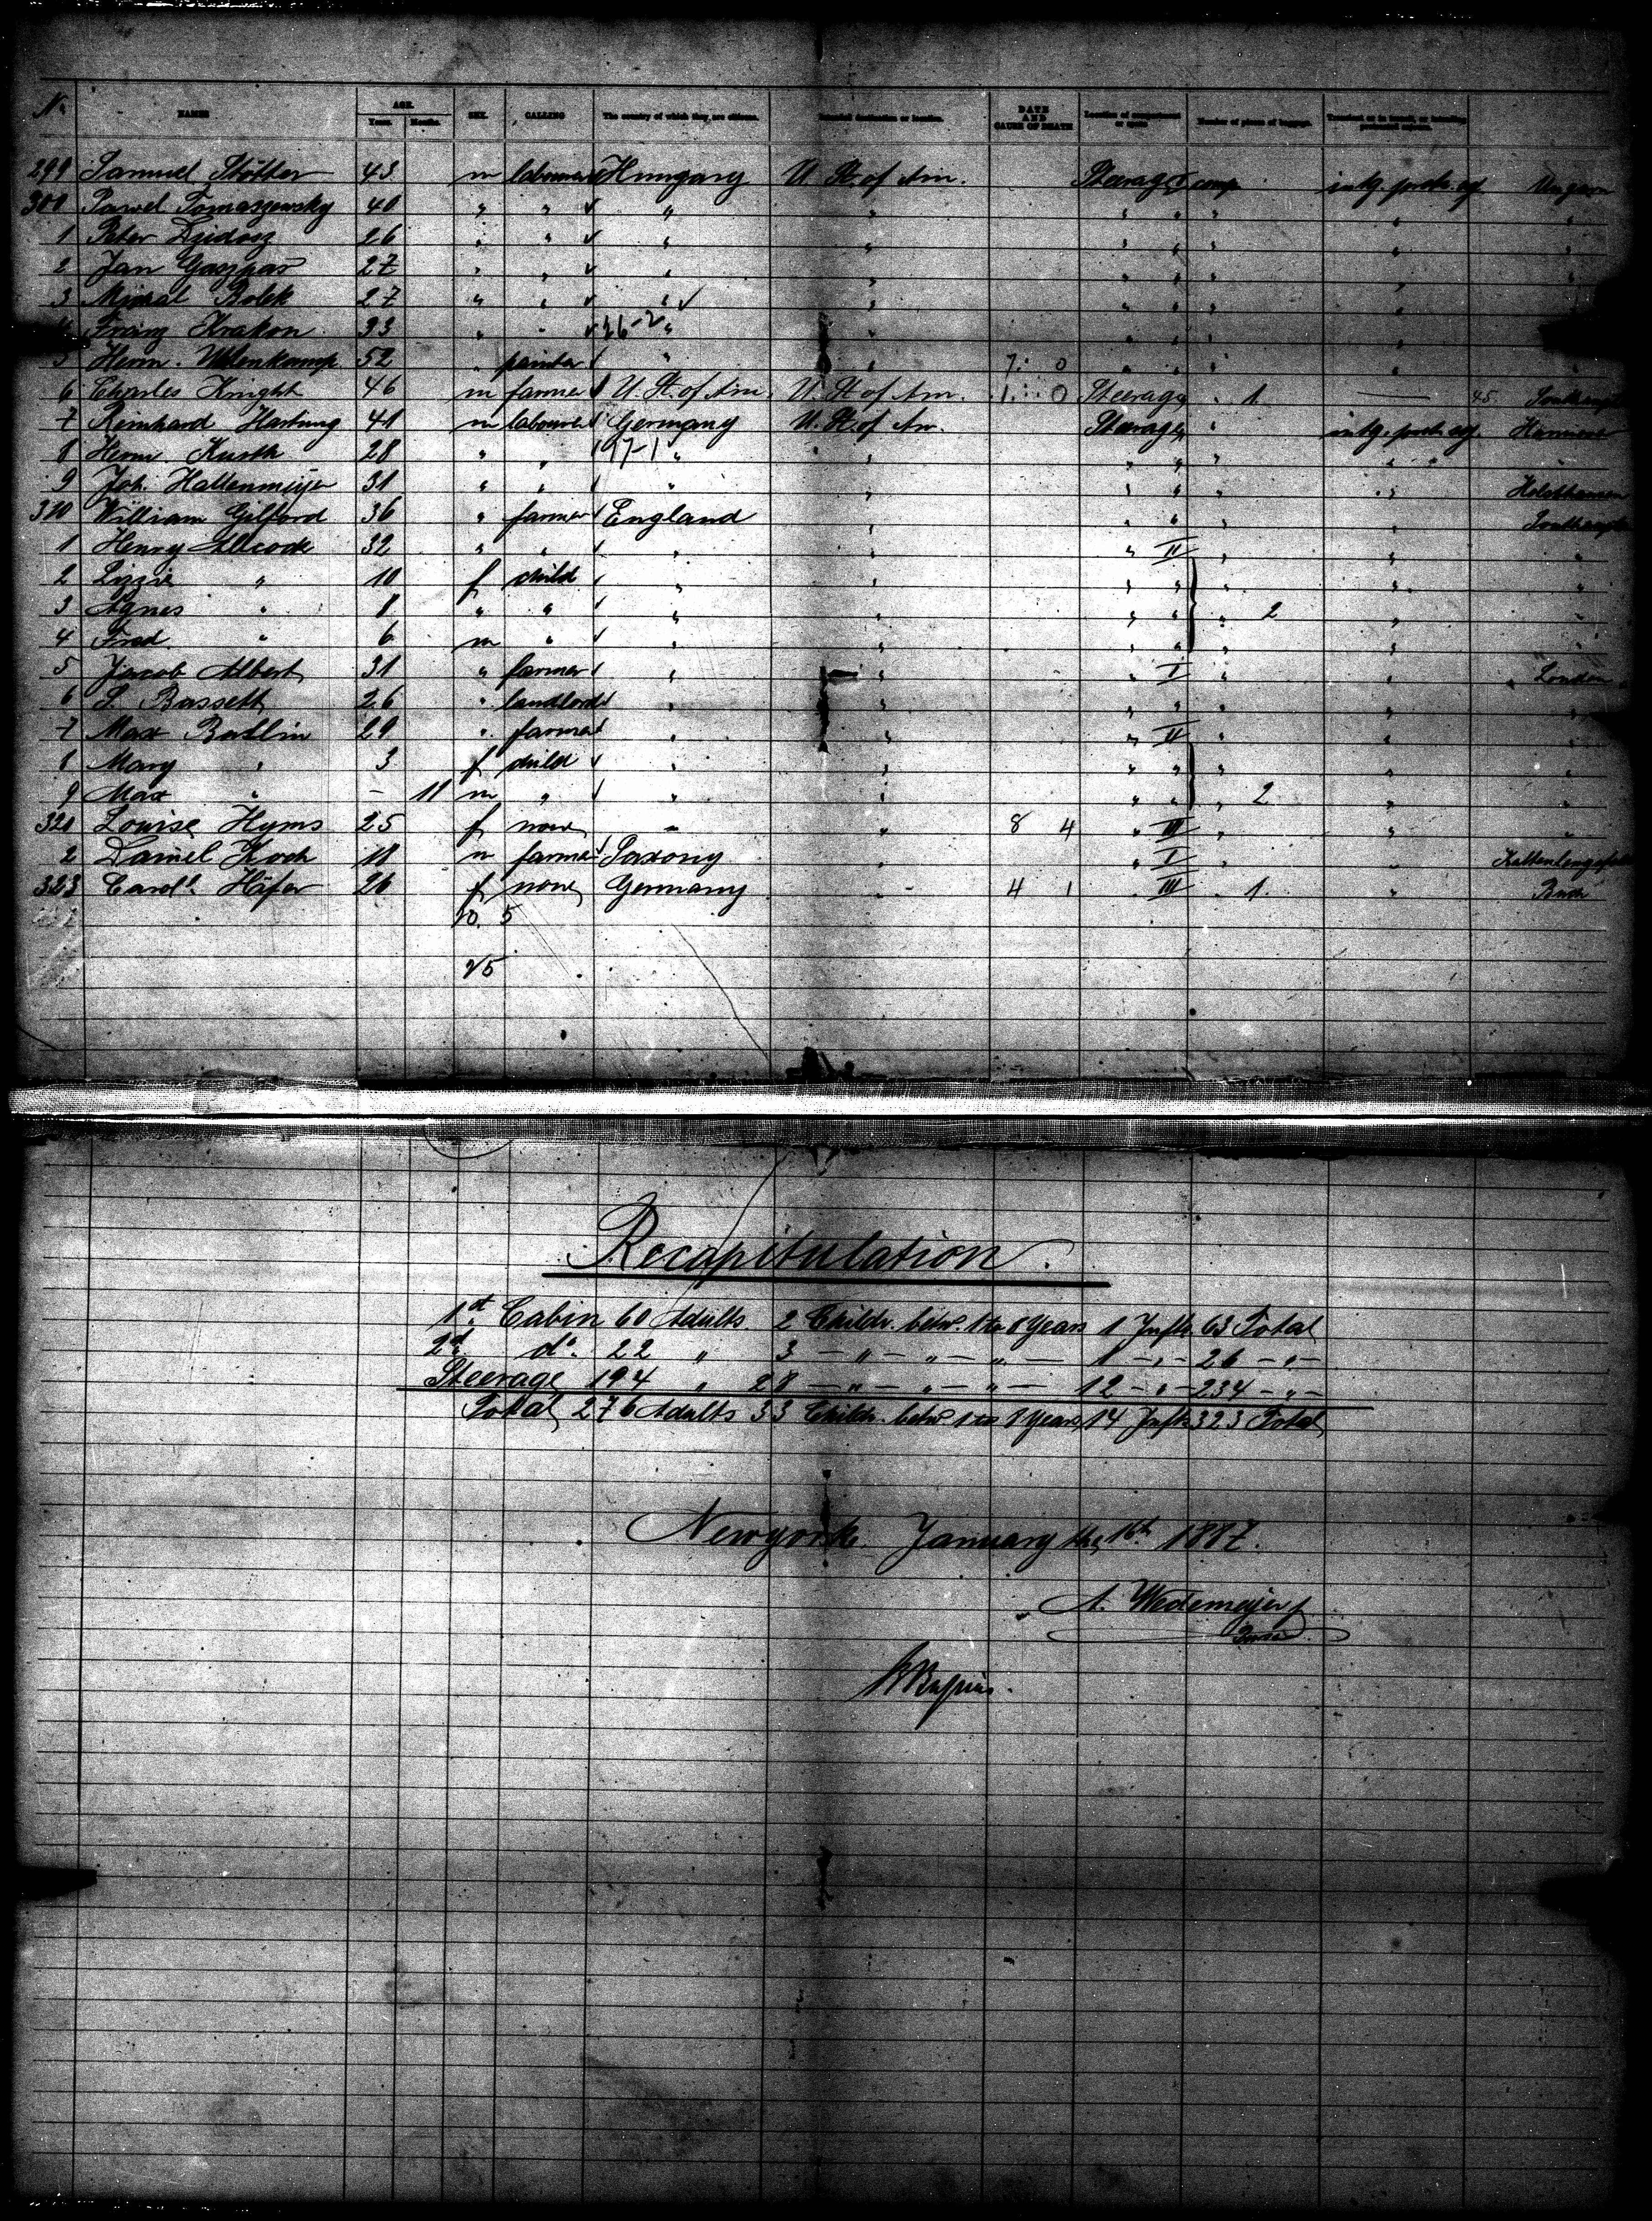 No. NAMES AGE. Years. Months. SEX. CALLING The country of which they are citizens. Intended destination or location. DATE AND CAUSE OF DEATH Location of compartment or space Number of pieces of baggage. Transient or in transit, or intending protracted sojourn.
299 Samuel 43 m labourer Hungary U. St. of Am. Steerage I comp intg. protr. sj. Ungarn
300 Pawel Tomaszewsky 40 " " " " " " " " "
1 Peter 26 " " " " " " " " "
2 Jan Gaszpar 27 " " " " " " " " "
3 Bolek 27 " " " " " " " "
4 Franz Krakon 33 " " 36-2 " " " " "
5 Herm. 52 " painter " " 7 0 " " "
6 Charles Knight 46 m farmer U. St. of Am. U. St. of Am. 1 0 Steerage " 1 — 45
7 Reinhard Hartung 41 m labourer Germany U. St. of Am. Steerage " intg. protr. sj. Hannover
8 Herm. Kurth 28 " " 97-1 " " " " " "
9 Joh. Hallenmeijer 31 " " " " " " " "
310 William Gilford 36 " farmer England " " " " "
1 Henry Allcock 32 " " " " " II " " "
2 Lizzie " 10 f child " " " " " " "
3 Agnes " 8 " " " " " " " 2 " "
4 Fred " 6 m " " " " " " " "
5 Jacob Albert 31 " farmer " " " I " " London
6 S. Bassett 26 " landlord " " " " " " "
7 Max Batlin 29 " farmer " " " II " " "
8 Mary " 3 f child " " " " " " "
9 Max " – 11 m " " " " " " 2 " "
320 Louise Hyms 25 f none " " 8 4 " III " " "
2 Daniel Koch 18 m farmer Saxony " " I " "
323 Carol. Häfer 26 f none Germany " 4 1 " III " 1 "
20. 5
25
Recapitulation.
1st Cabin 60 Adults 2 Childr. betw. 1 to 8 Years 1 Infts 63 Total
2d do. 22 " 3 — " — " — " — 1 — " — 26 — " —
Steerage 194 " 28 — " — " — " — 12 — " — 234 — " —
Total 276 Adults 33 Childr. betw. 1 to 8 Years 14 Infts 323 Total
Newyork January the 16th 1887.
A. Wedemeijer